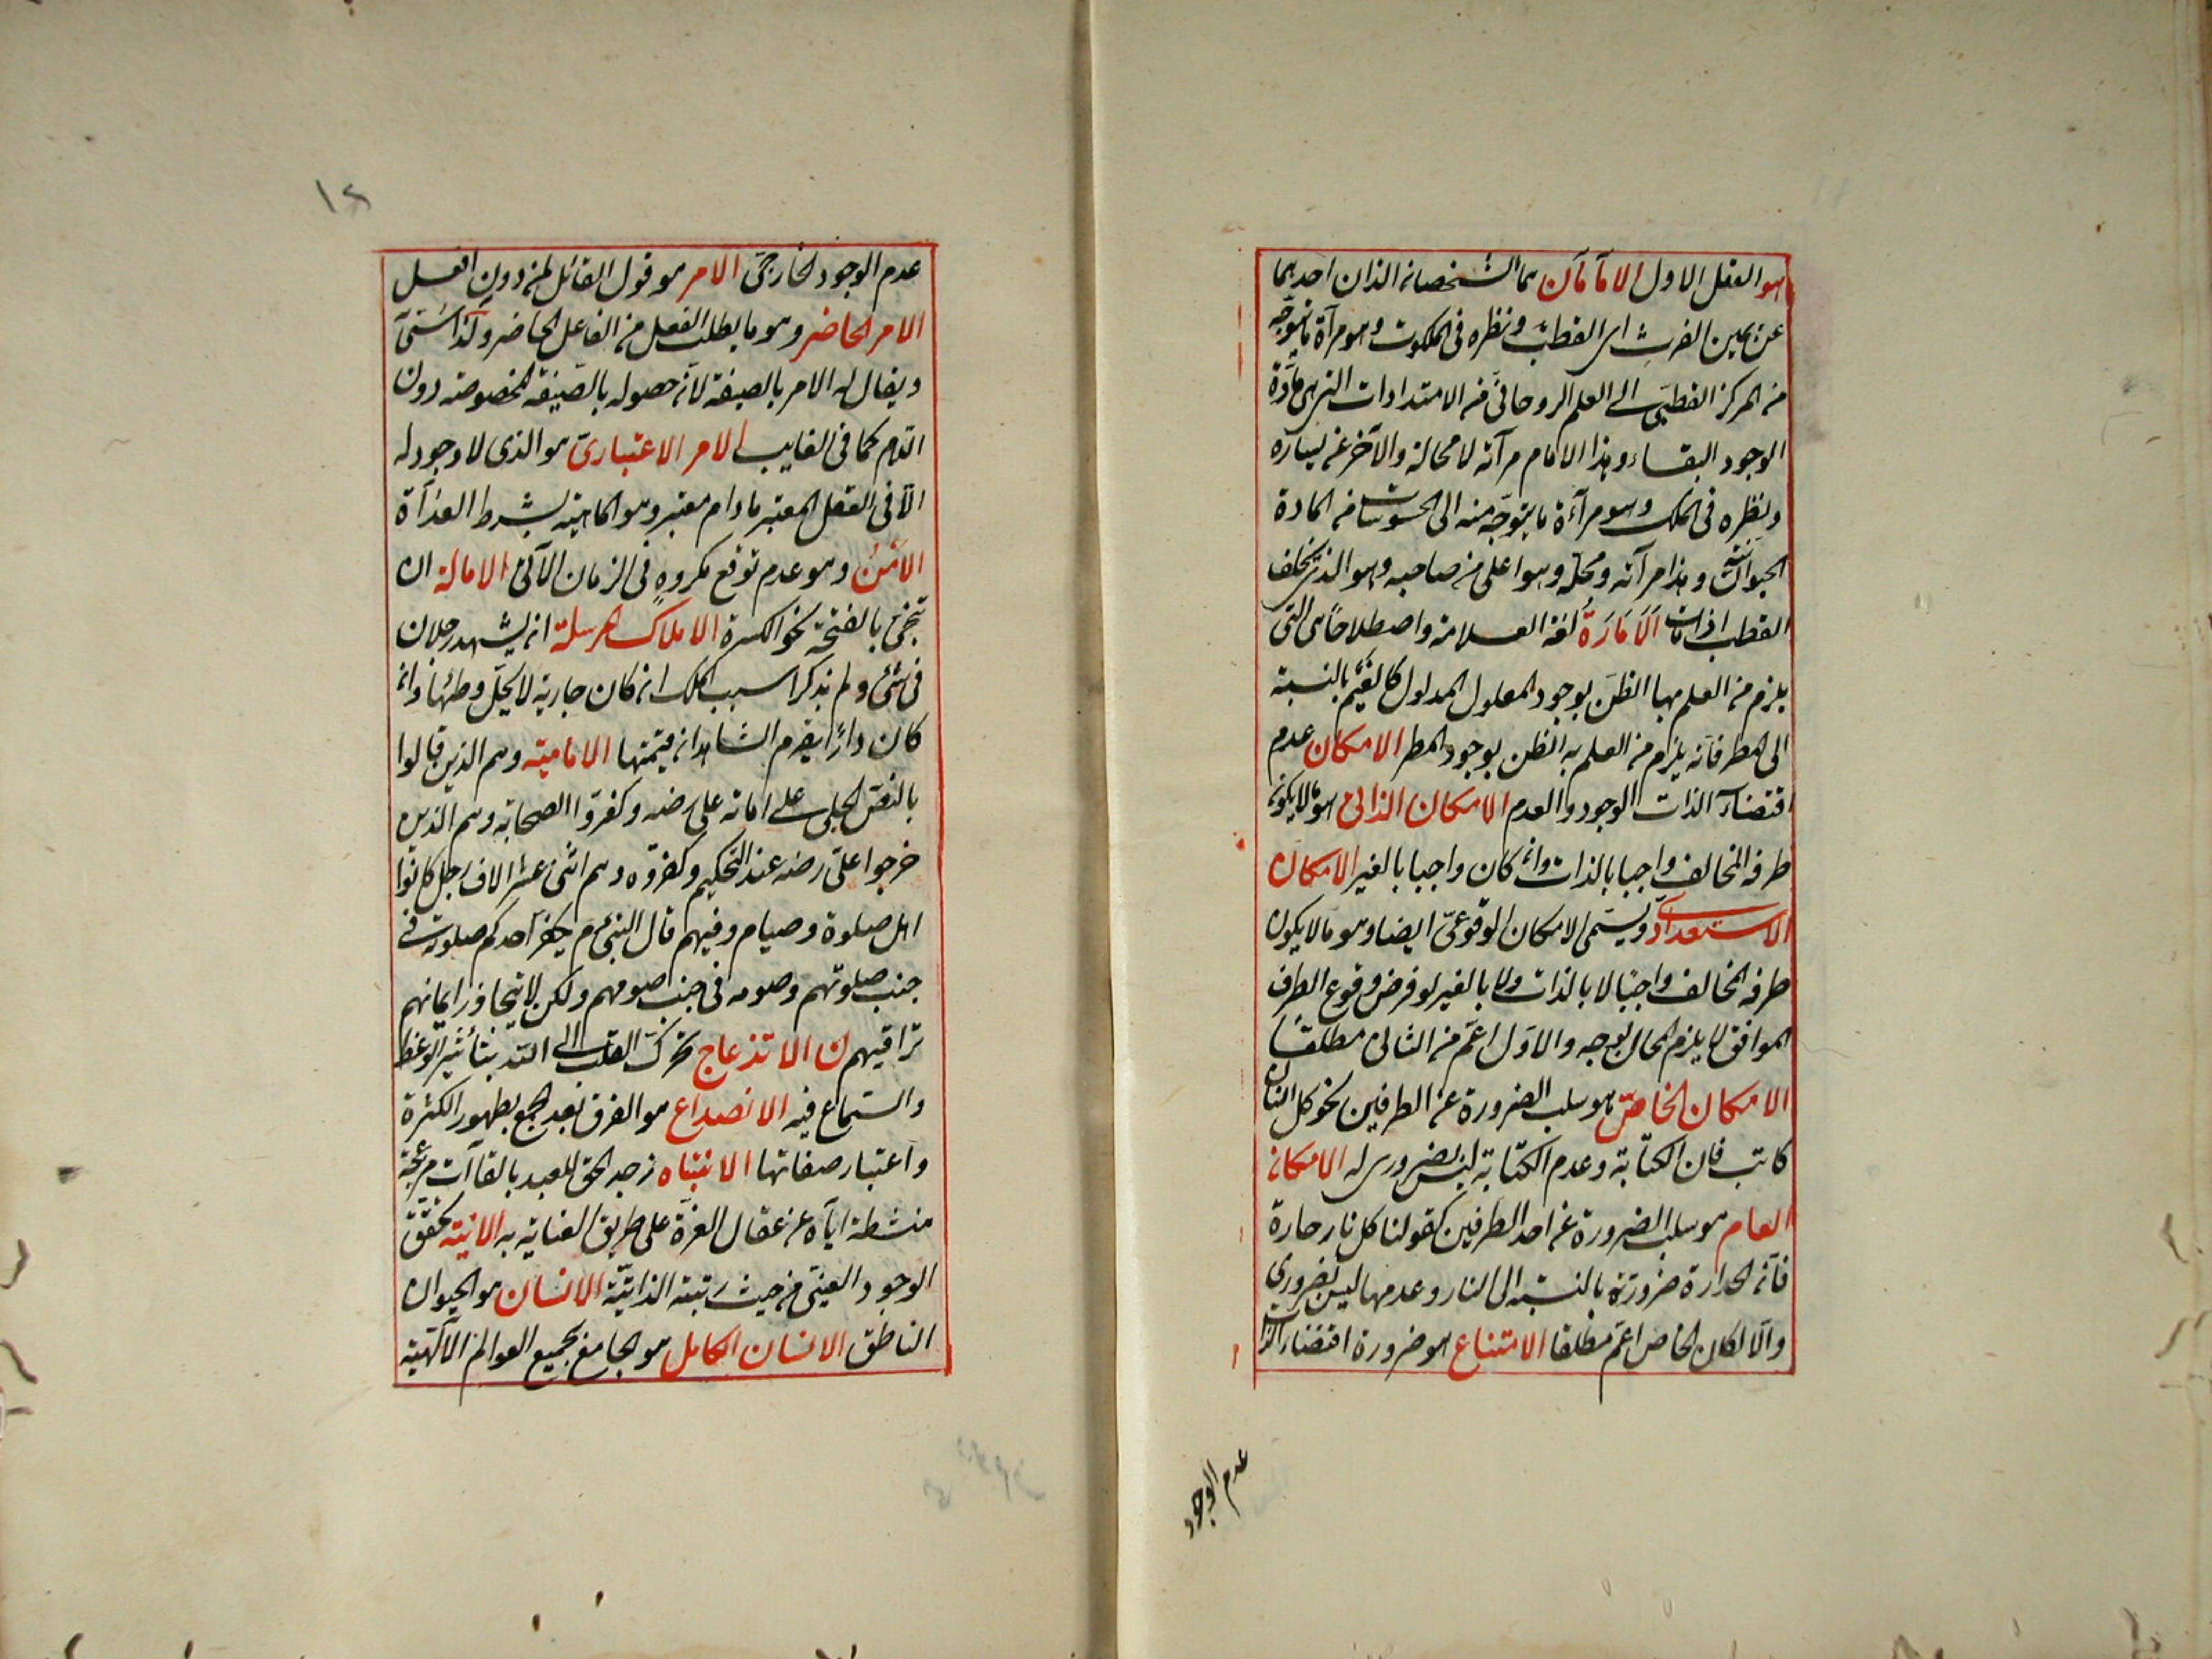 هو العقل الاول الامامان هما الشخصان الذان احدهما
عن يمين الغوث اى القطب ونظره فى الملكوت وهو مرآة ما يتوجه
من المركز القطبى الى العلم الروحانى من الامتدادات التى هى مادة
الوجود البقاء وهذا الامام مرآته لا محالة والآخر عن يساره
ونظره فى الملك وهو مرآءة ما يتوجه منه الى المحسوسات من المادة
الحيوانية وهذا مرآته ومحله وهو اعلى من صاحبه وهو الذى يخلف
القطب اذا مات الامارة لغة العلامة واصطلاحا هى التى
يلزم من العلم بها الظن بوجود المعلول المدلول كالغيم بالنسبة
الى المطر فانه يلزم من العلم به الظن بوجود المطر الامكان عدم
اقتضاء الذات الوجود والعدم الامكان الذاتى هو ما لا يكون
طرفه المخالف واجبا بالذات وان كان واجبا بالغير الامكان
الاستعدادى ويسمى الامكان الوقوعى ايضا وهو ما لا يكون
طرفه المخالف واجبا لا بالذات ولا بالغير لو فرض وقوع الطرف
الموافق لا يلزم المحال بوجه والاول اعم من الثانى مطلقا
الامكان الخاص هو سلب الضرورة عن الطرفين نحو كل انسان
كاتب فان الكتابة وعدم الكتابة ليس بضرورى له الامكان
العام هو سلب الضرورة عن احد الطرفين كقولنا كل نار حارة
فان الحرارة ضرورية بالنسبة الى النار وعدمها ليس بضرورى
والا لكان الخاص اعم مطلقا الامتناع هو ضرورة اقتضاء الذات
عدم الوجود
١٢
عدم الوجود الخارجى الامر هو قول القائل لمن دونه افعل
الامر الحاضر وهو ما يطلب الفعل من الفاعل الحاضر وكذا سمى
ويقال له الامر بالصيغة لان حصوله بالصيغة المخصوصة دون
اللام كما فى الغايب الامر الاعتبارى هو الذى لا وجود له
الا فى العقل المعتبر مادام معتبر وهو الماهية بشرط العراة
الامن وهو عدم توقع مكروه فى الزمان الآتى الامالة ان
تنحى بالفتحة نحو الكسرة الاملاك المرسلة ان يشهد رجلان
فى شئ ولم يذكرا سبب الملك ان كان جارية لا يحل وطئها وان
كان دارا يغرم الشاهدان قيمتها الامامية وهم الذين قالوا
بالنص الجلى على امامة على رضه وكفروا الصحابة وهم الذين
خرجوا على على رضه عند التحكيم وكفروه وهم اثنى عشر الاف رجل كانوا
اهل صلوة وصيام وفيهم قال النبى م يحقر احدكم صلوته فى
جنب صلوتهم وصومه فى جنب صومهم ولكن لا يتجاوز ايمانهم
تراقيهم ن الانزعاج تحرك القلب الى الله بتأثير الوعظ
والسماع فيه الانصداع هو الفرق بعد الجمع بظهور الكثرة
واعتبار صفاتها الانتباه زجر الحق للعبد بالقاآت مزعجة
منشطة اياه عن عقال الغرة على طريق العناية به الانية تحقق
الوجود العينى من حيث رتبته الذاتية الانسان هو الحيوان
الناطق الانسان الكامل هو الجامع بجميع العوالم الآلهية